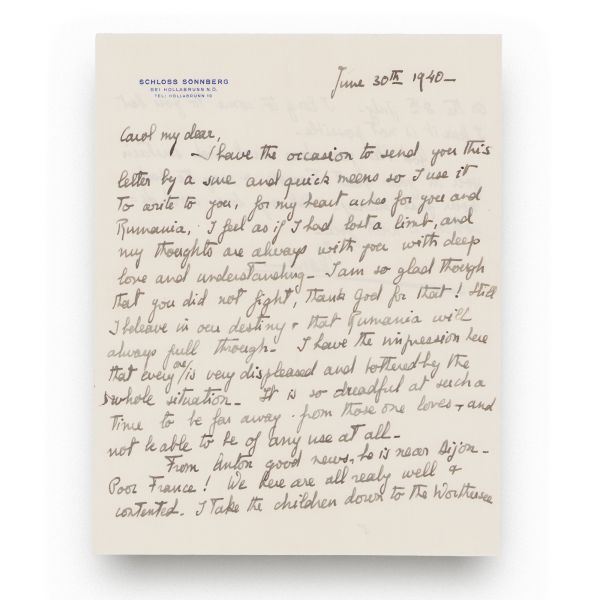 SCHLOSS SONNBERG
BEI HOLLABRUNN N.Ö.
TEL: HOLLABRUNN 10
June 30th 1940-
Carol my dear,
- I have the occasion to send you this
letter by a sure and quick meens so I use it
to write to you, for my heart aches for you and
Rumania, I feel as if I had lost a limb, and
my thoughts are always with you with deep
love and understanding- I am so glad though
that you did not fight, thank God for that! Still
I beleave in our destiny & that Rumania will
always pull through- I have the impression here
that every one is very displeased and bothered by the
whole situation- It is so dreadful at such a
time to be far away from those one loves, and
not be able to be of any use at all-
From Anton good news, he is near Dijon-
Poor France! We here are all really well &
contented. I take the children down to the Wörthersee